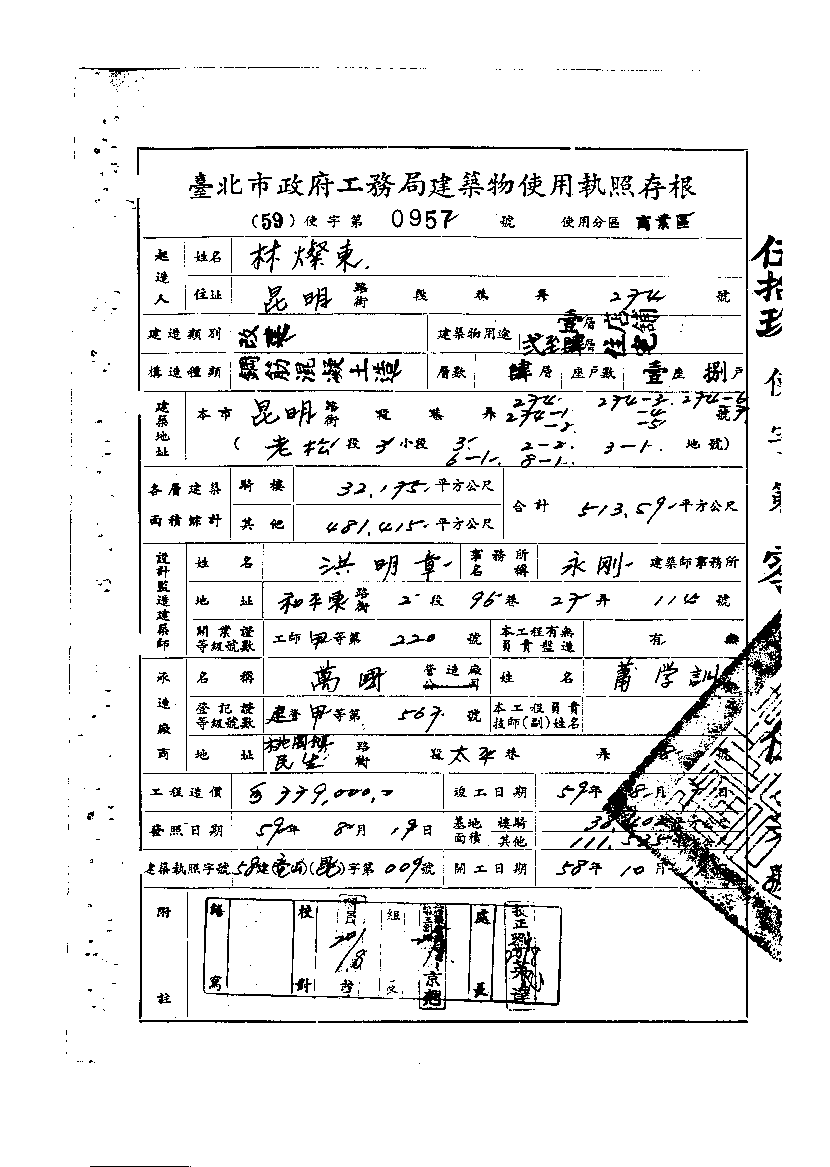 臺北市政府工務局建築物使用執照存根
(59)使字第 0957 號 使用分區 商業區
起造人 姓名 林燦東
住址 昆明 路街 段 巷 弄 274 號
建造類別 改建 建築物用途 壹層店舖 弍至肆層住宅
構造種類 鋼筋混凝土造 層數 肆層 座戶數 壹座 捌戶
建築地址 本市 昆明 路街 段 巷 弄 274. 274-1 -2. 274-3. -4 -5 274-6 號
(老松段 3 小段 3. 6-1. 2-2. 8-1. 3-1. 地號)
各層建築面積綜計 騎樓 32.175 平方公尺 合計 513.59 平方公尺
其他 481.415 平方公尺
設計監造建築師 姓名 洪明章 事務所名稱 永剛 建築師事務所
地址 和平東 路街 2 段 96 巷 27 弄 號
開業證等級號數 工師 甲 等第 220 號 本工程有無負責監造 有 無
承造廠商 名稱 萬國 營造廠公司 姓名 莆学訓
登記證等級號數 建營 甲 等第 567 號 本工程負責技師(副)姓名
地址 桃園鎮民生 路街 段 太平 巷 弄 號
工程造價 339,000.0 竣工日期 59年 8 月 日
發照日期 59年 8月 19日 基地面積 樓騎
其他 111.535
建築執照字號 58建(龍山)(昆)字第 009號 開工日期 58年 10月
附註 繕寫 校對 組長 處長
伍拾玖 使字第 零